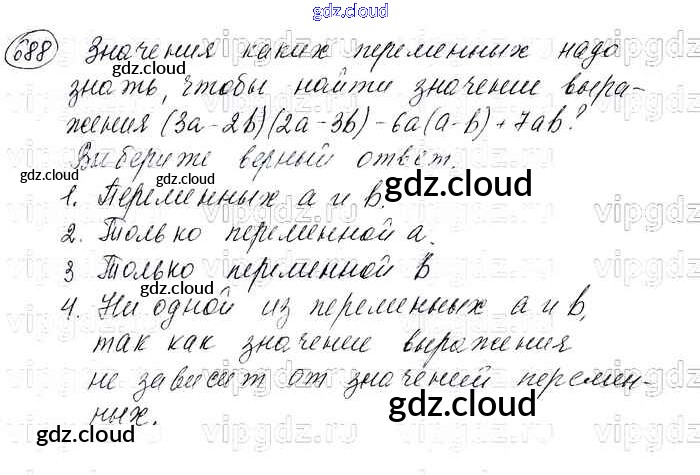 gdz.cloud
688 Значения каких переменных надо
знать, чтобы найти значение выра-
жения (3a-2b)(2a-3b)-6a(a-b)+7ab?
Выберите верный ответ.
gdz.cloud
1. Переменных a и b.
2. Только переменной a.
3 Только переменной b
4. Ни одной из переменных a и b,
так как значение выражения
не зависит от значений перемен-
ных.